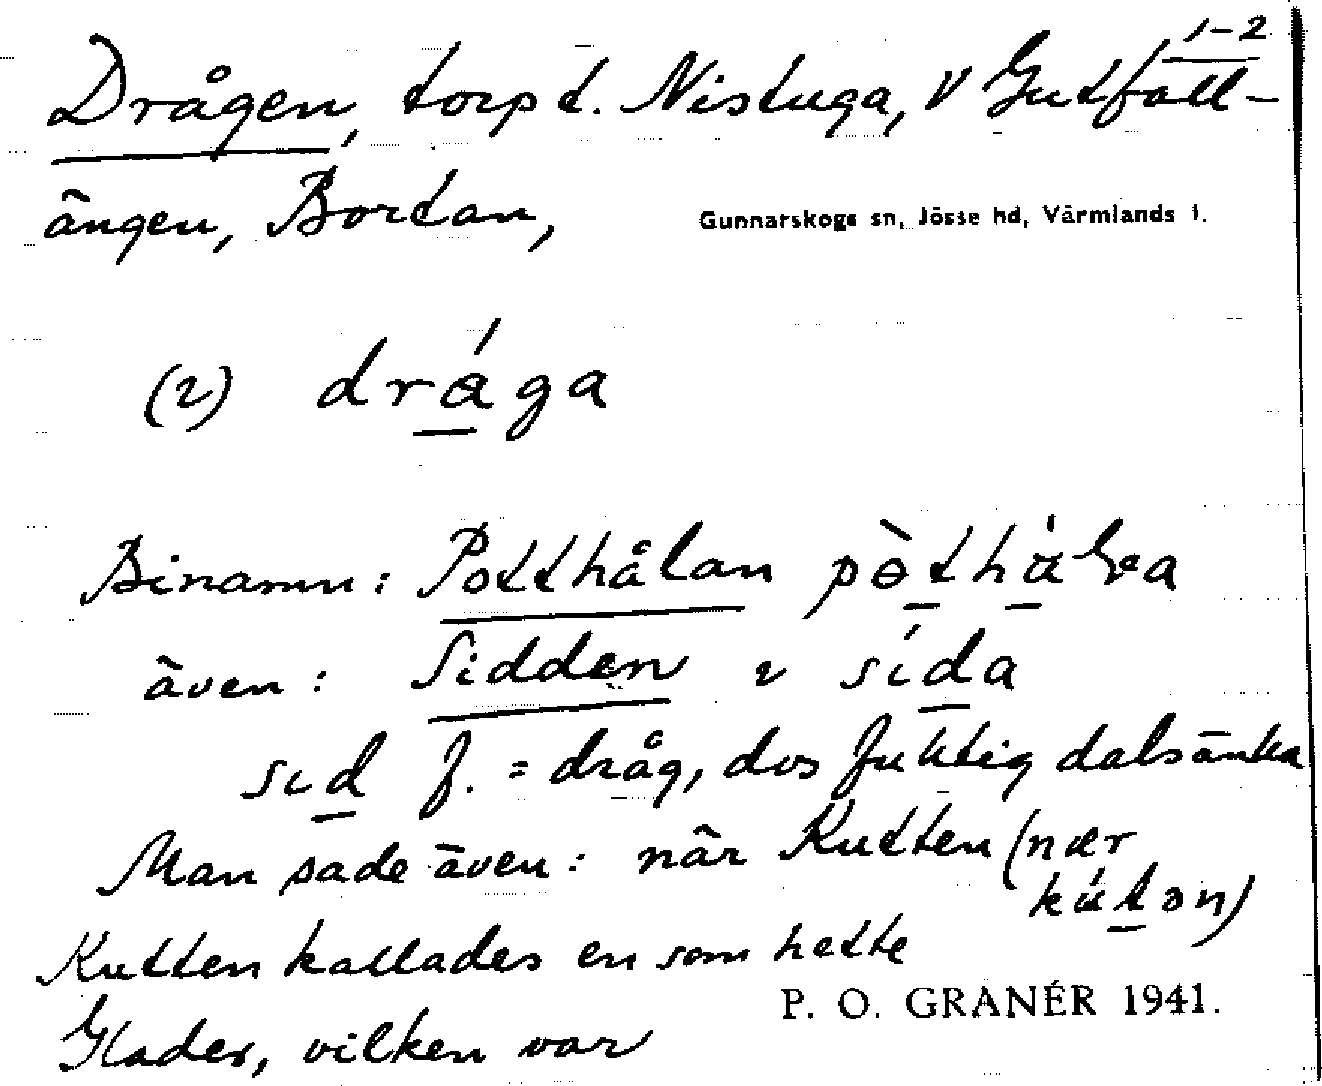 1-2
Drågen, torp t. Nistuga, V Gutfall-
ängen, Bortan,
Gunnarskogs sn, Jösse hd, Värmlands l.
(2) drága
Binamn: Potthålan
även: Sidden 2 sída
sid f. = dråg, dvs fuktig dalsänka
Man sade även: när Kutten (nær
kútən)
Kutten kallades en som hette
P. O. GRANÉR 1941.
Glader, vilken var